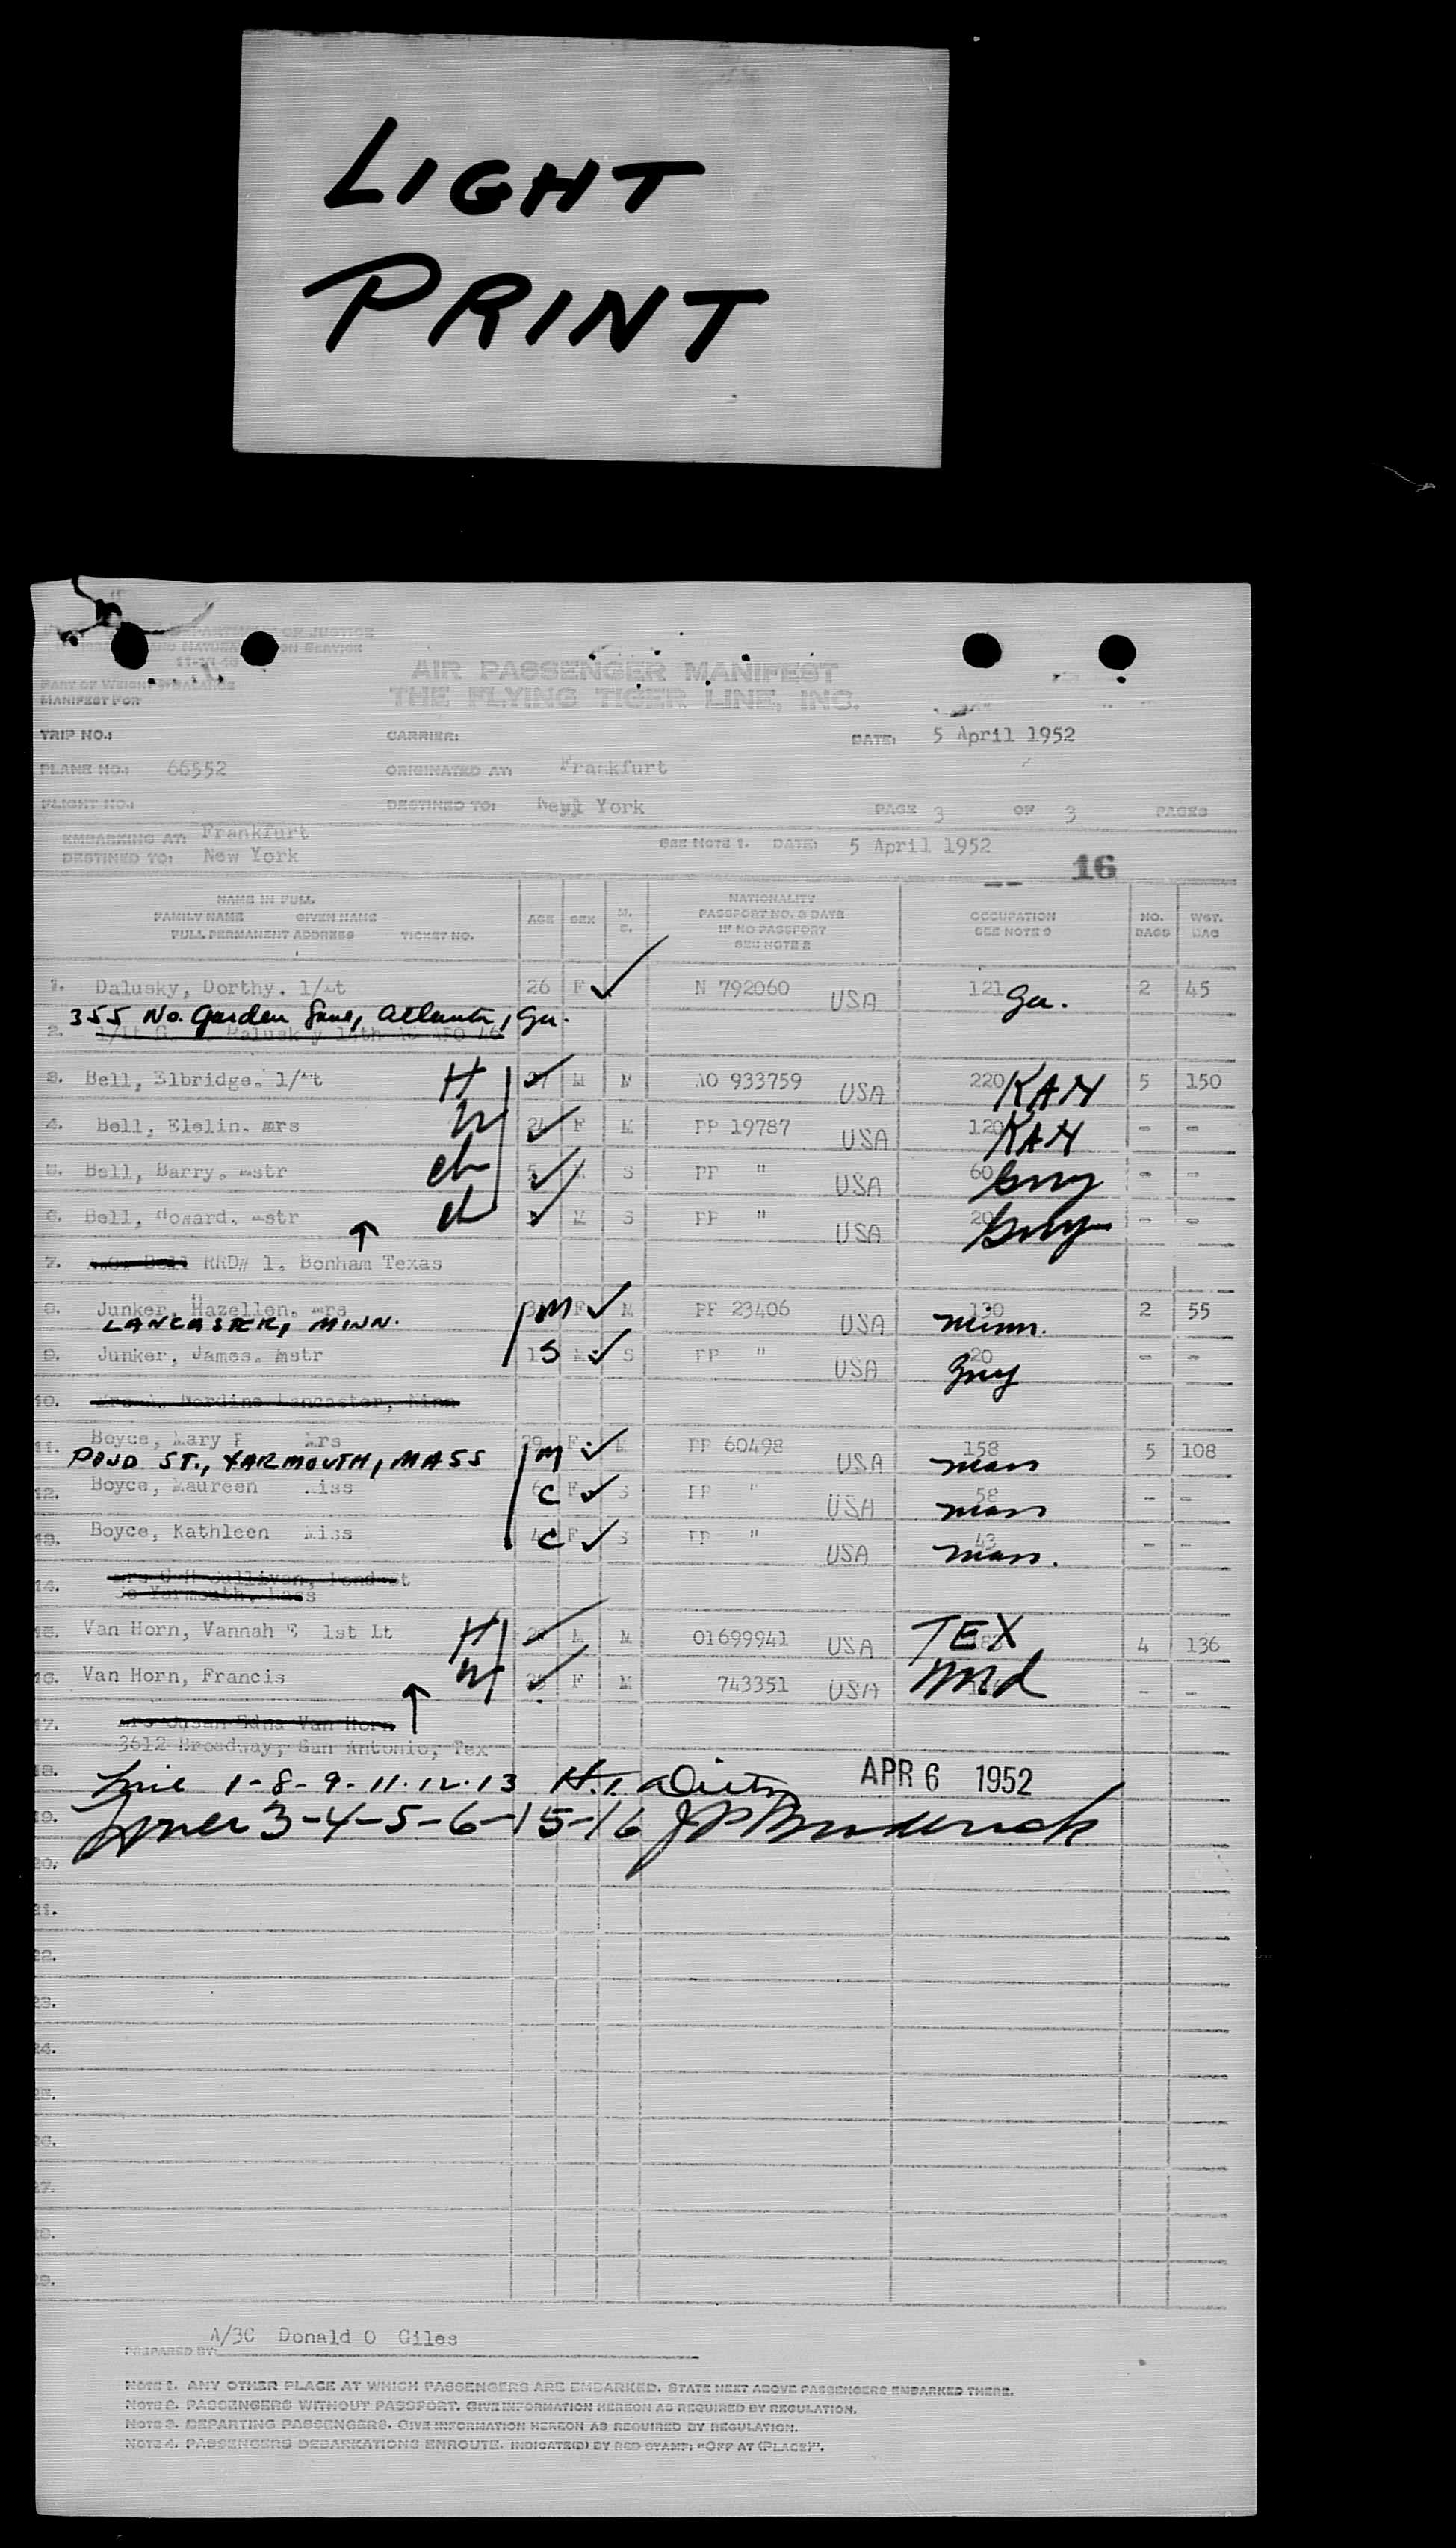 LIGHT
PRINT
DEPARTMENT OF JUSTICE
AND NATURALIZATION SERVICE
AIR PASSENGER MANIFEST
PART OF WEIGHT & BALANCE
MANIFEST FOR
THE FLYING TIGER LINE, INC.
TRIP NO.: CARRIER: DATE: 5 April 1952
PLANE NO.: 66552 ORIGINATED AT: Frankfurt
FLIGHT NO.: DESTINED TO: New York PAGE 3 OF 3 PAGES
EMBARKING AT: Frankfurt
DESTINED TO: New York SEE NOTE 1. DATE: 5 April 1952
16
NAME IN FULL
FAMILY NAME GIVEN NAME
FULL PERMANENT ADDRESS TICKET NO.
AGE SEX M. S.
NATIONALITY
PASSPORT NO. & DATE
IF NO PASSPORT
SEE NOTE 2
OCCUPATION
SEE NOTE 3
NO. BAGS
WGT. BAG
1. Dalusky, Dorthy. 1/Lt 26 F ✓ N 792060 USA 121 Ga. 2 45
355 No. Garden Lane, Atlanta, Ga.
2.
3. Bell, Elbridge. 1/Lt H ✓ M M AO 933759 USA 220 KAN 5 150
4. Bell, Elelin. mrs W 24 ✓ F M PP 19787 USA 120 KAN - -
5. Bell, Barry. mstr ch 5 ✓ S PP " USA 60 Gny - -
6. Bell, Howard. mstr ch ✓ M S PP " USA 20 Gny - -
7. Bell RRD# 1. Bonham Texas
8. Junker, Hazellen. mrs M F ✓ M PP 23406 USA 130 Minn. 2 55
LANCASTER, MINN.
9. Junker, James. mstr 1 S ✓ S PP " USA 20 Gny - -
10. Mrs Nordine Lancaster, Minn
11. Boyce, Mary F Mrs 29 M F ✓ M PP 60498 USA 158 Mass 5 108
POND ST., YARMOUTH, MASS
12. Boyce, Maureen Miss 6 C F ✓ S PP " USA 58 Mass - -
13. Boyce, Kathleen Miss 4 C F ✓ S PP " USA 43 Mass. - -
14. Mrs Sullivan, Pond St
So Yarmouth, Mass
15. Van Horn, Vannah E 1st Lt H ✓ M M 01699941 USA TEX 4 136
16. Van Horn, Francis W ✓ F M 743351 USA Md - -
17. Mrs Susan Edna Van Horn
3612 Broadway, San Antonio, Tex
18. Line 1-8-9-11-12-13 APR 6 1952
19. Lines 3-4-5-6-15-16
20.
21.
22.
23.
24.
25.
26.
27.
28.
29.
A/3C Donald O Giles
PREPARED BY:
NOTE 1. ANY OTHER PLACE AT WHICH PASSENGERS ARE EMBARKED. STATE NEXT ABOVE PASSENGERS EMBARKED THERE.
NOTE 2. PASSENGERS WITHOUT PASSPORT. GIVE INFORMATION HEREON AS REQUIRED BY REGULATION.
NOTE 3. DEPARTING PASSENGERS. GIVE INFORMATION HEREON AS REQUIRED BY REGULATION.
NOTE 4. PASSENGERS DEBARKATIONS ENROUTE. INDICATE(D) BY RED STAMP: "OFF AT (PLACE)".